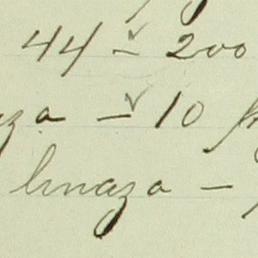 44 - 200
za - 10
linaza -